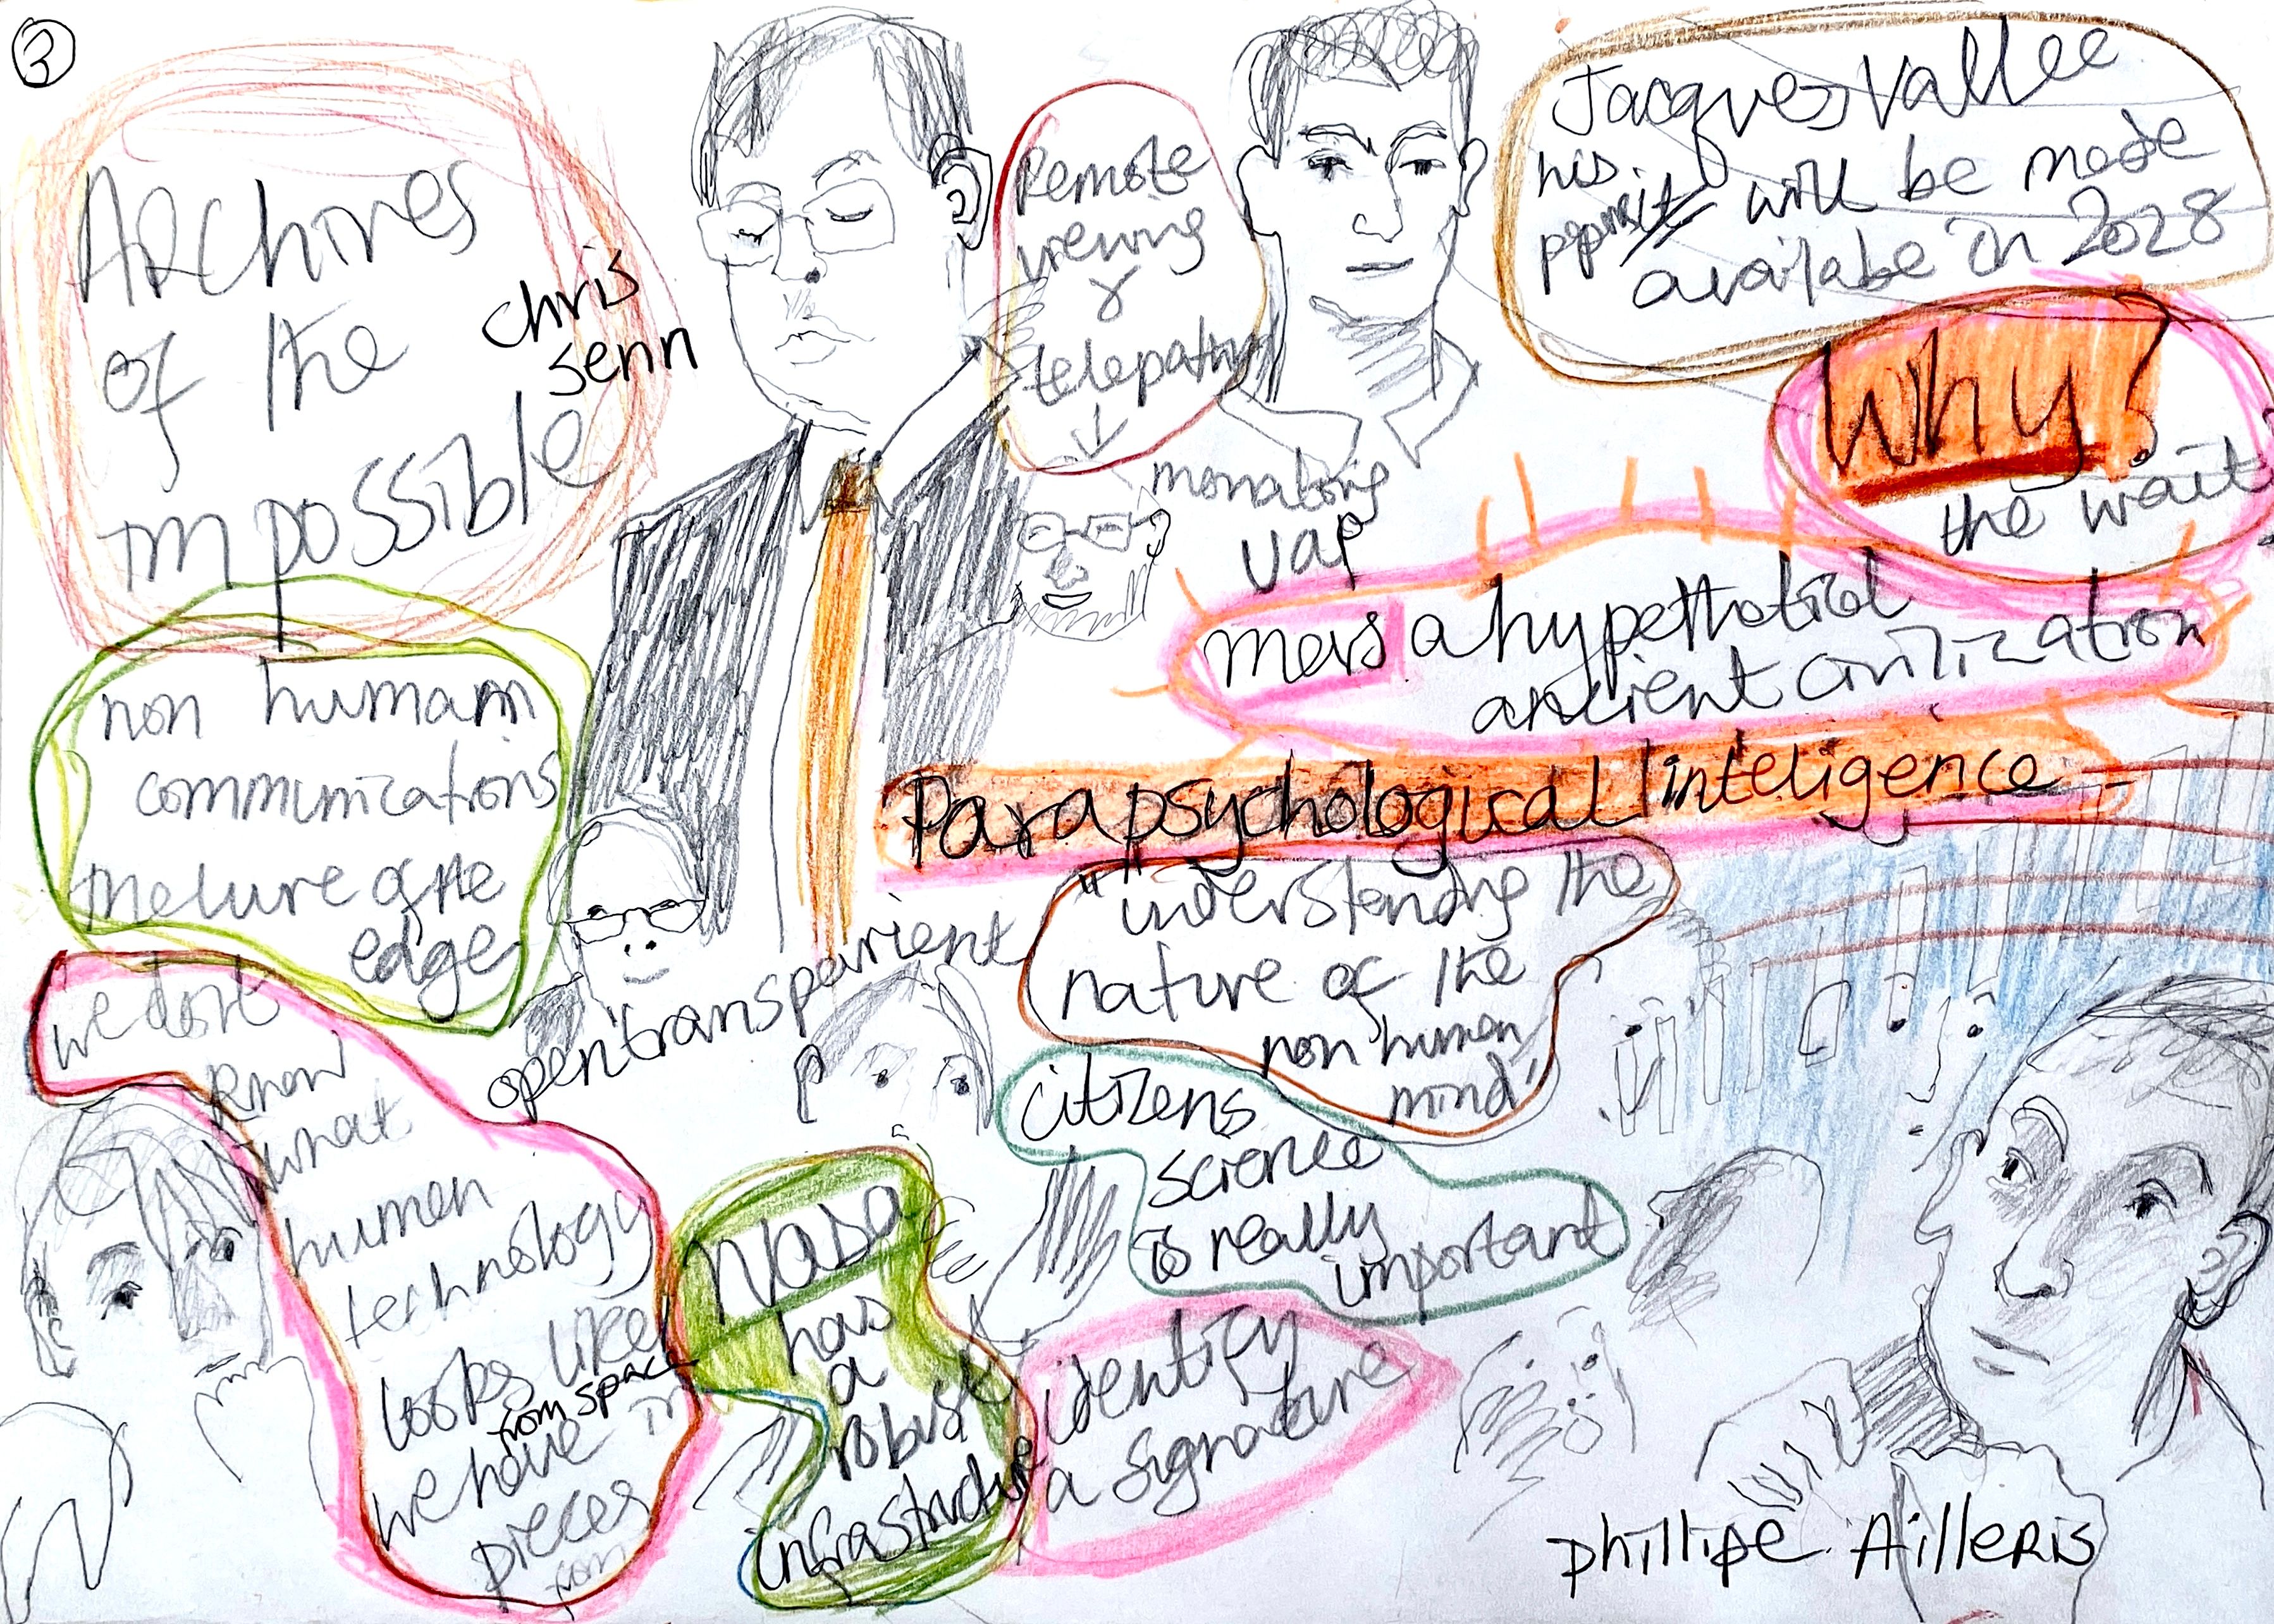 3
Archives
of the
Impossible
chris
senn
Remote
viewing
&
telepathy
Jacques Vallee
his
will be made
availabe in 2028
Why?
the wait
UAP
Mars a hypothetical
ancient civilization
Parapsychological intelligence
non human
communications
the lure of the
edge
open transparient
"understanding the
nature of the
non human
mind"
we dont
know
what
human
technology
looks like
from space
we have
pieces
from
citizens
science
is really
important
Nasa
has
a
robust
infrastructure
identify
a signature
phillipe Ailleris